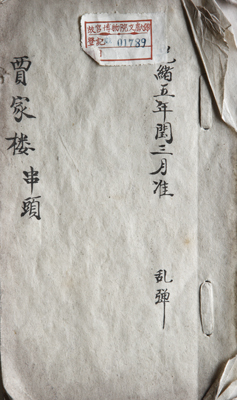 故宫博物院文献馆
登记 01789
光緒五年閏三月准
乱弹
賈家楼串頭